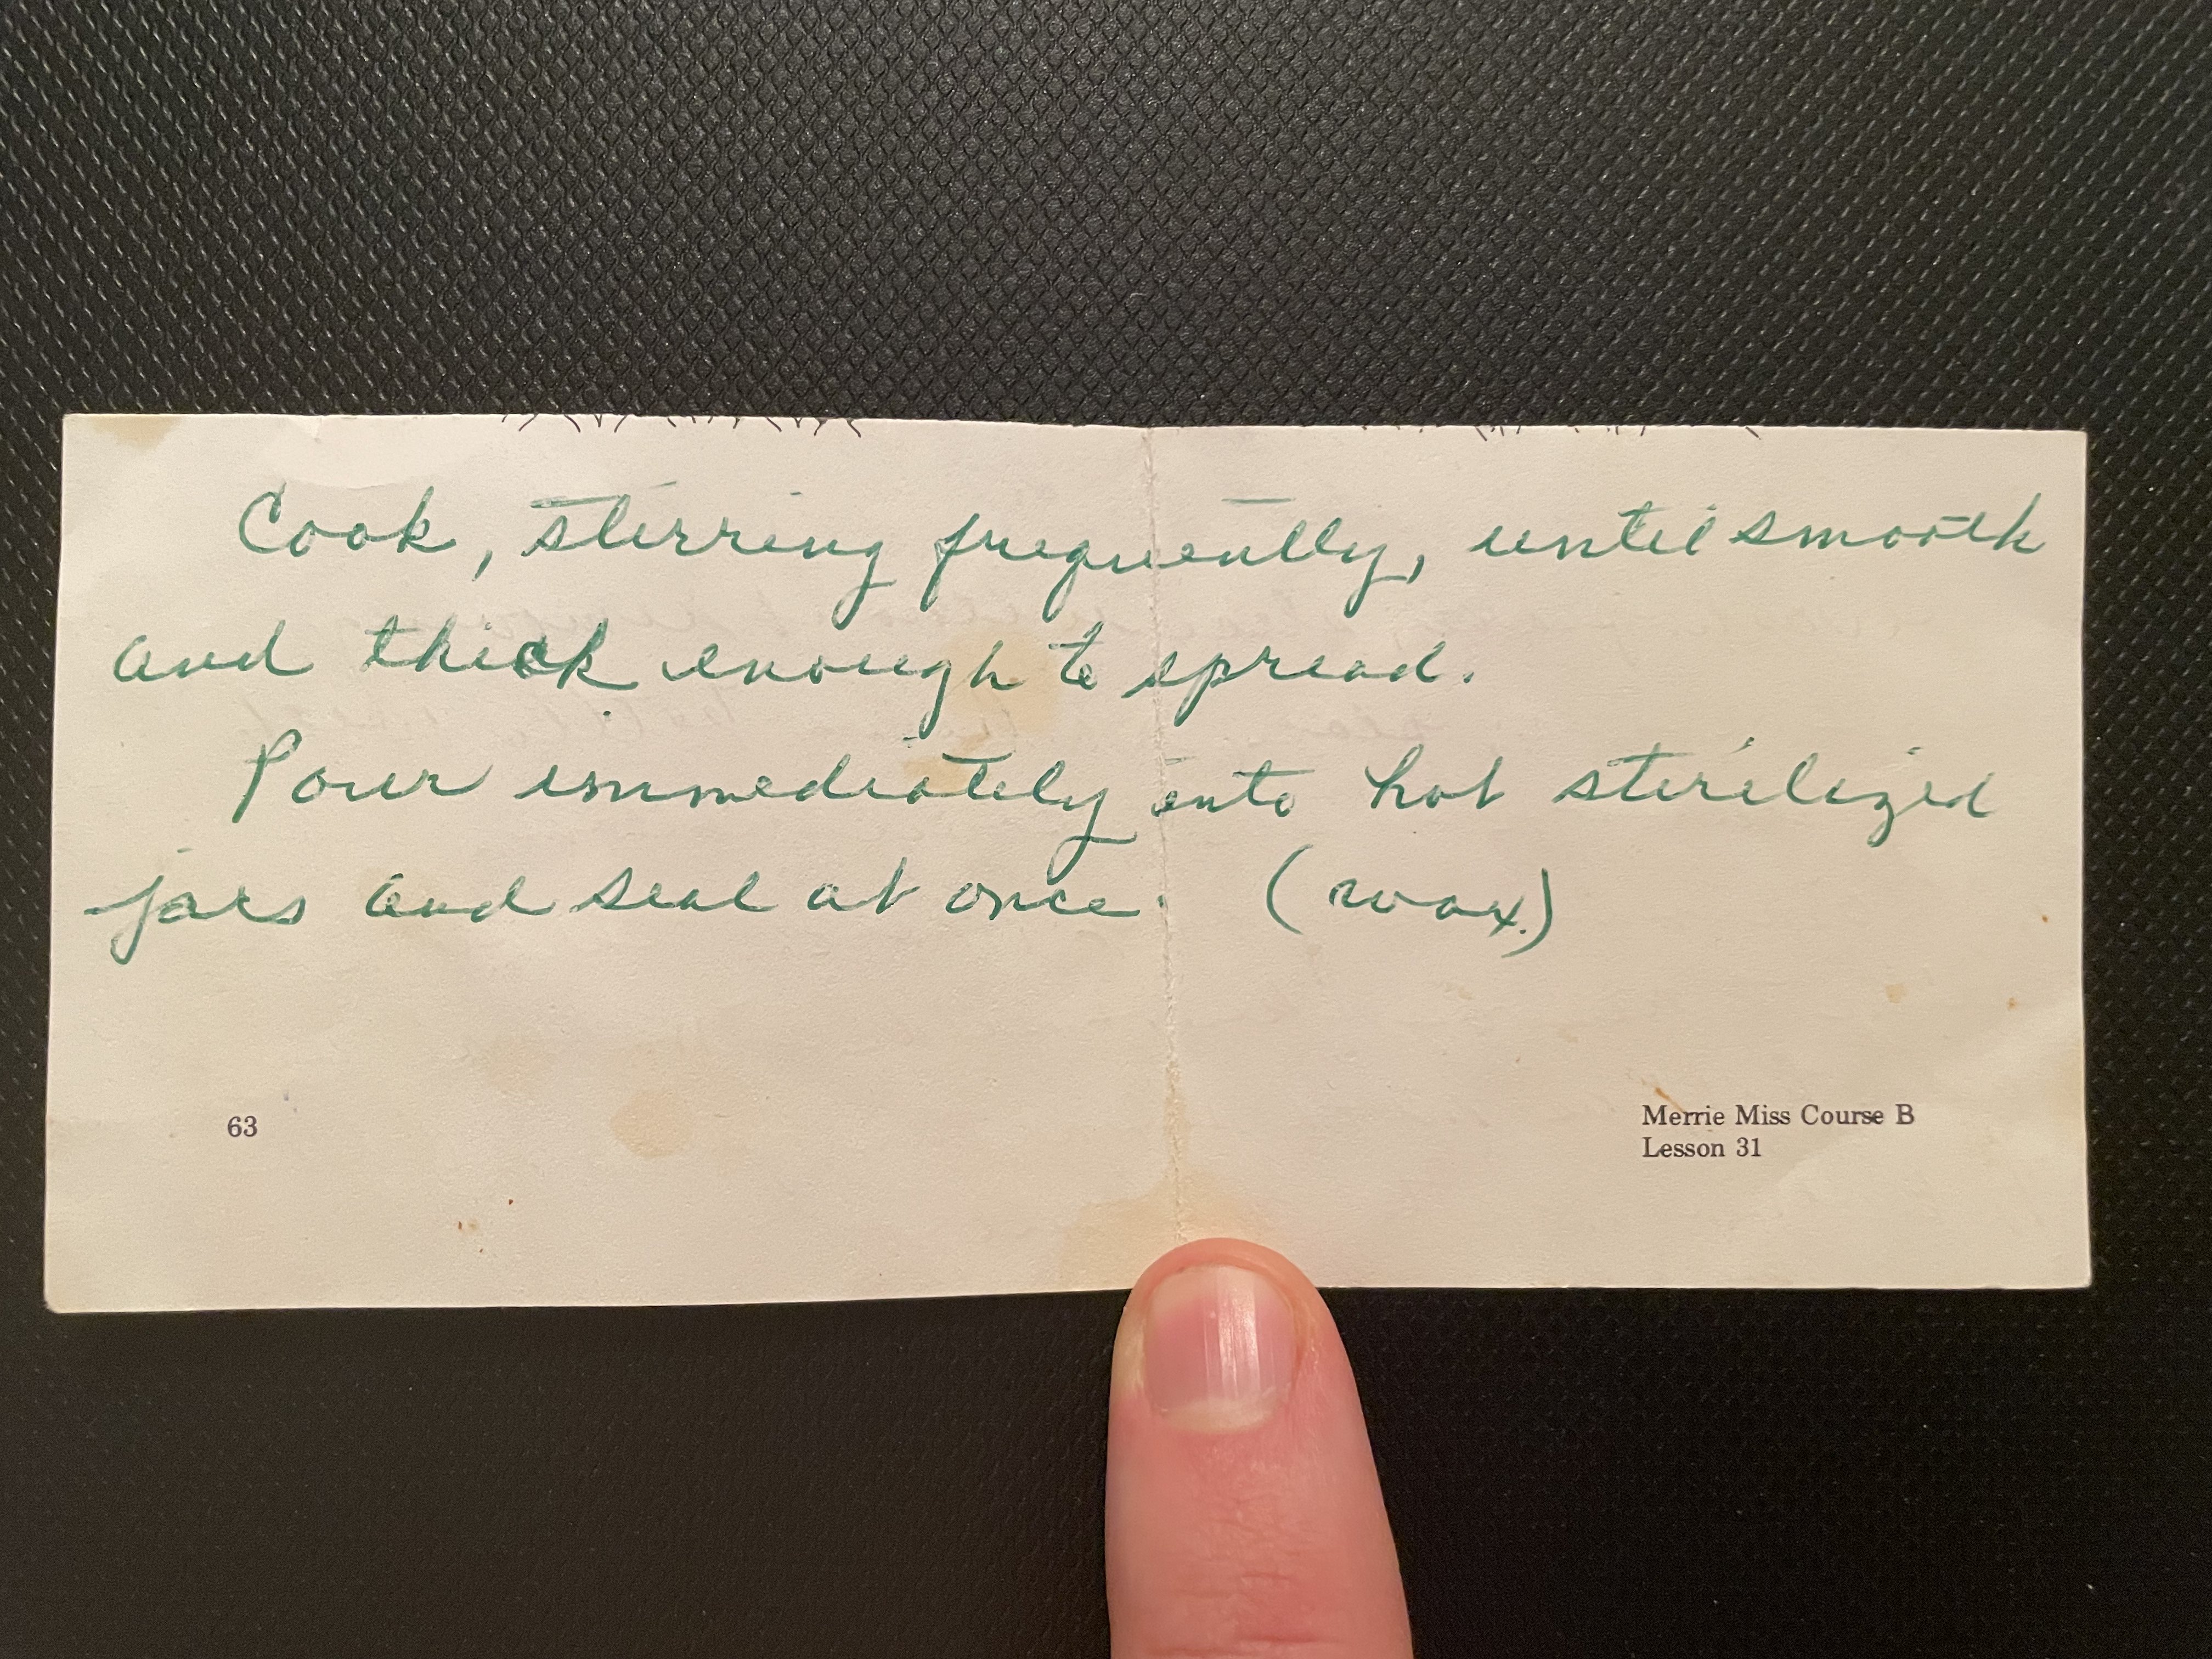 Cook, stirring frequently, until smooth
and thick enough to spread.
Pour immediately into hot sterilized
jars and seal at once. (wax.)
63
Merrie Miss Course B
Lesson 31